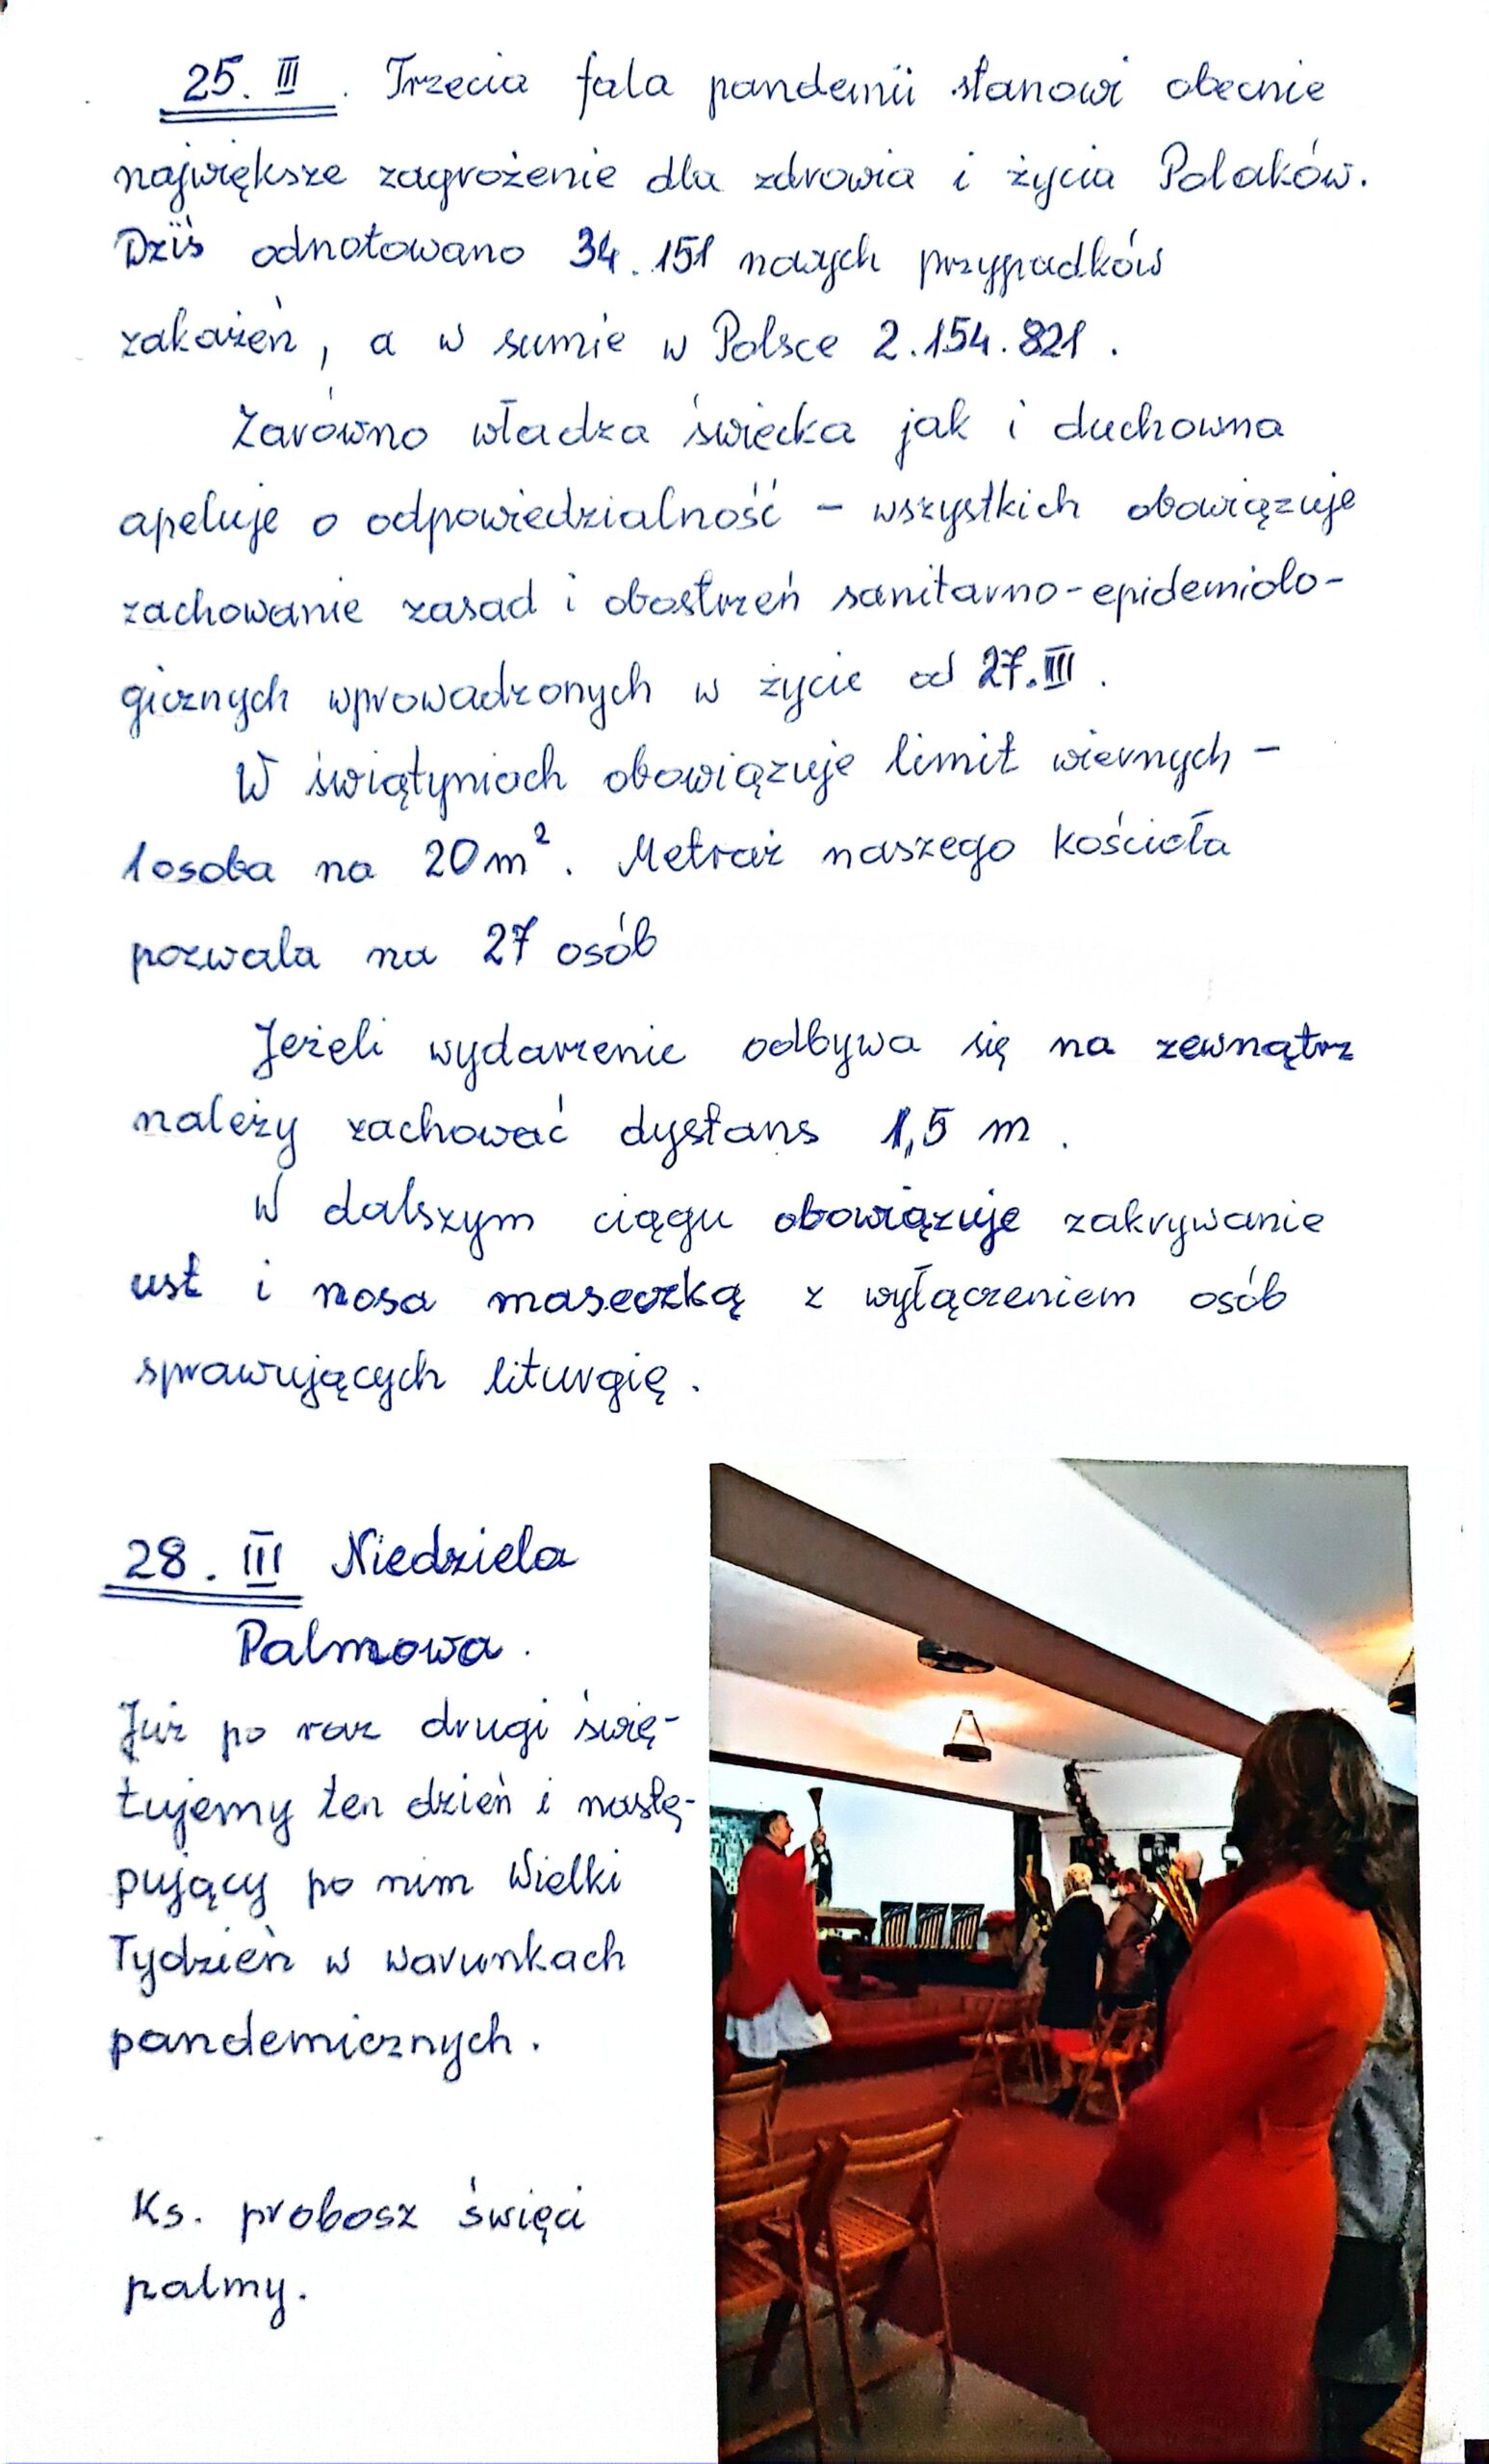 25. III. Trzecia fala pandemii stanowi obecnie
największe zagrożenie dla zdrowia i życia Polaków.
Dziś odnotowano 34.151 nowych przypadków
zakażeń, a w sumie w Polsce 2.154.821.
Zarówno władza świecka jak i duchowna
apeluje o odpowiedzialność - wszystkich obowiązuje
zachowanie zasad i obostrzeń sanitarno-epidemiolo-
gicznych wprowadzonych w życie od 27.III.
W świątyniach obowiązuje limit wiernych -
1 osoba na 20 m². Metraż naszego kościoła
pozwala na 27 osób
Jeżeli wydarzenie odbywa się na zewnątrz
należy zachować dystans 1,5 m.
W dalszym ciągu obowiązuje zakrywanie
ust i nosa maseczką z wyłączeniem osób
sprawujących liturgię.
28. III Niedziela
Palmowa.
Już po raz drugi świę-
tujemy ten dzień i nastę-
pujący po nim Wielki
Tydzień w warunkach
pandemicznych.
Ks. probosz święci
palmy.